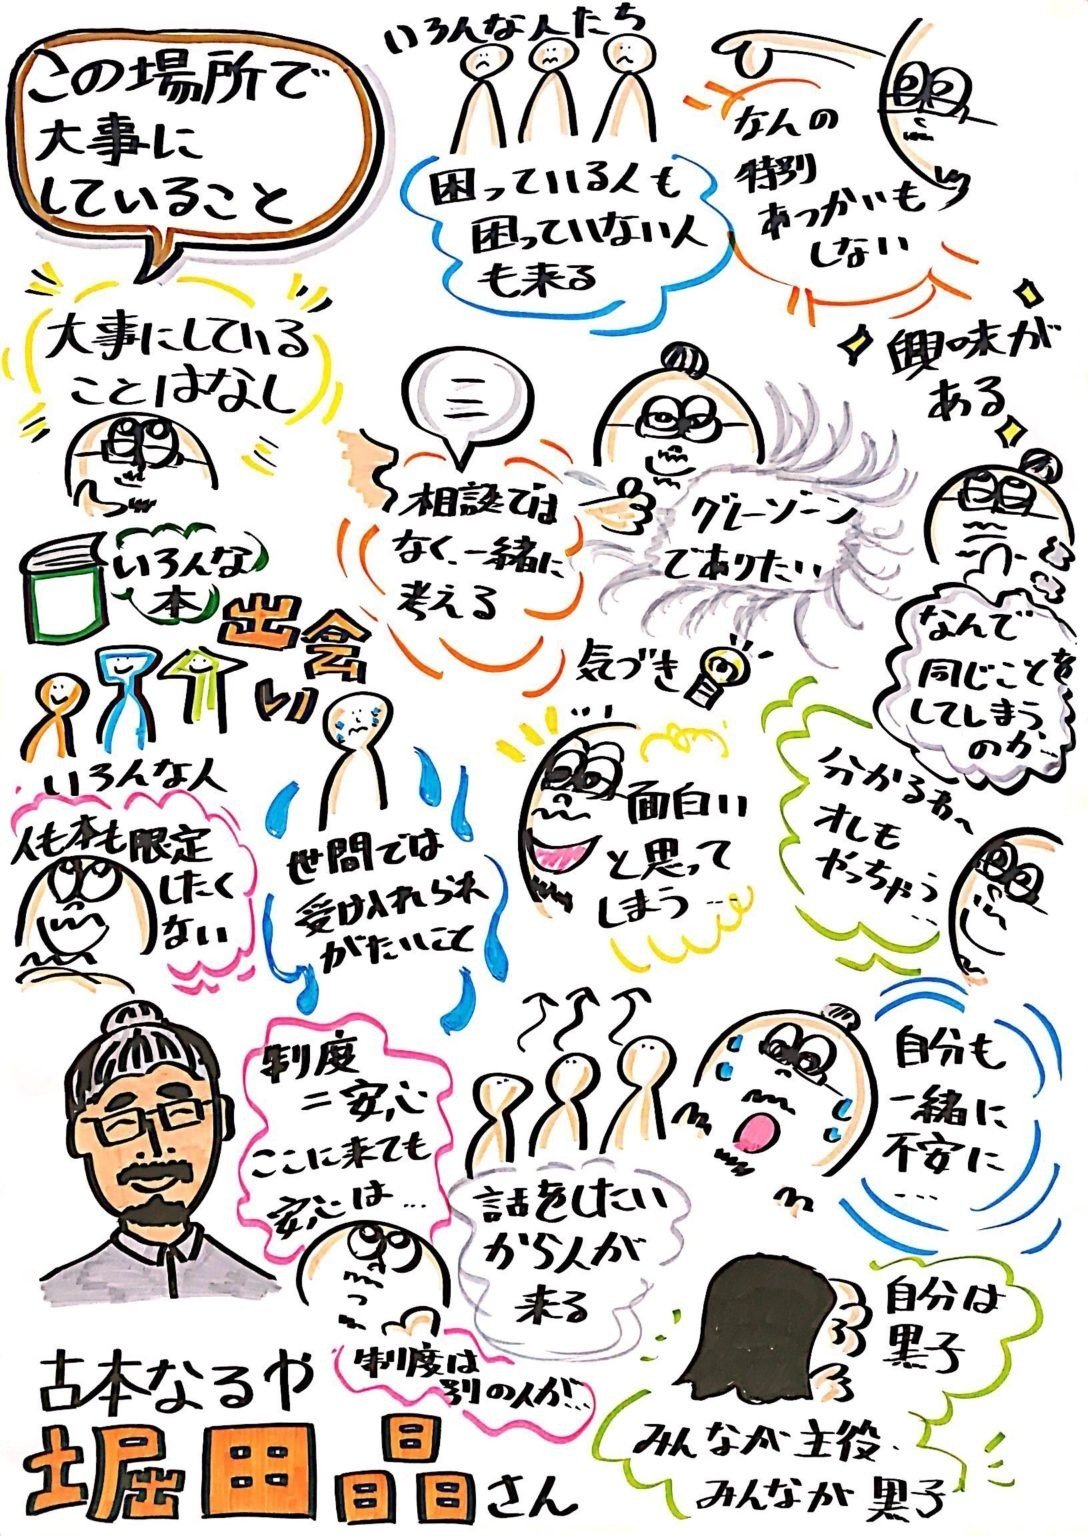 この場所で
大事に
していること
いろんな人たち
困っている人も
困っていない人
も来る
なんの
特別
あつかいも
しない
大事にしている
ことはなし
興味が
ある
相談では
なく、一緒に
考える
グレーゾーン
でありたい
いろんな
本
出会い
いろんな人
気づき
なんで
同じことを
してしまう
のか…
人も本も限定
したく
ない
世間では
受け入れられ
がたいこと
面白い
と思って
しまう…
分かるわへ
オレも
やっちゃう…
制度
=安心
ここに来ても
安心は…
制度は
別の人が…
話をしたい
から人が
来る
自分も
一緒に
不安に
…
自分は
黒子
みんなが主役
みんなが黒子
古本なるや
堀田晶さん